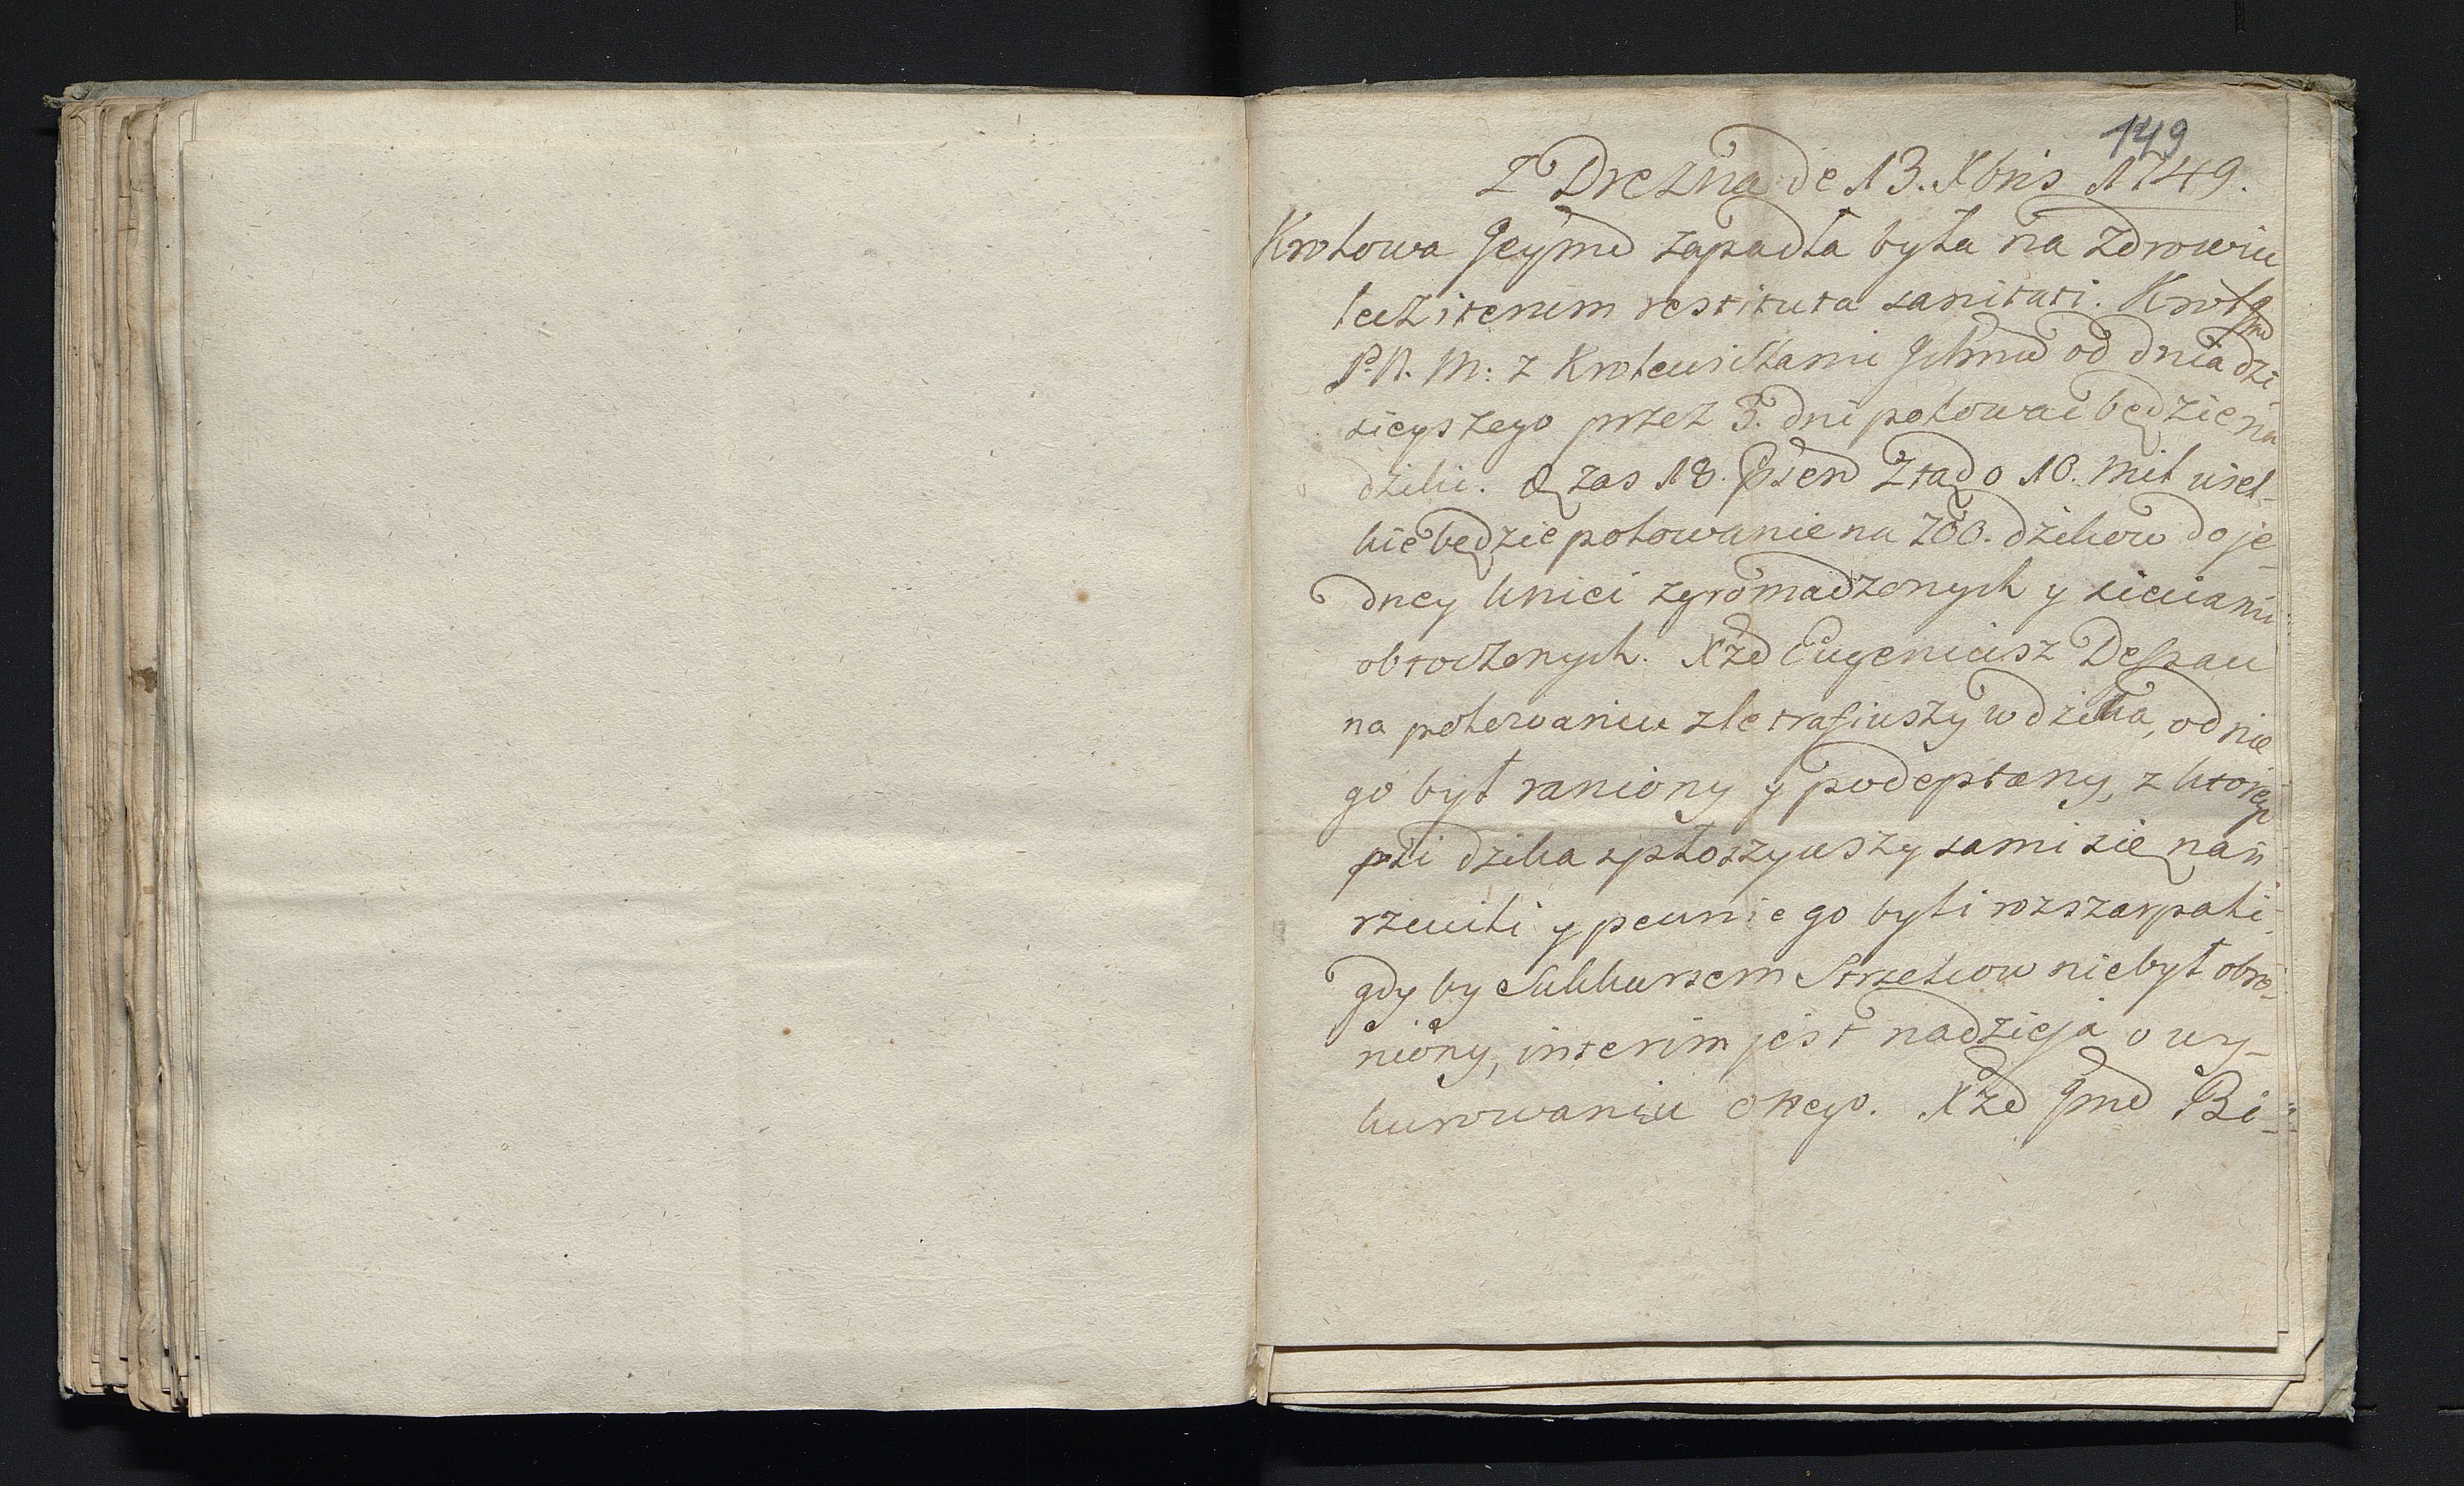 149
Z Drezna de 13. Xbris 1749.
Krolowa Jeymć zapadła była na zdrowiu
lecz iterum restituta sanitati. Krol Jmć
P. N. M: z Krolewiczami Ichmć od dnia dzi
sieyszego przez 3. dni polować będzie na
dziki. à zas 18. praesen Ztąd o 10. mil wiel-
kie będzie polowanie na 700. dzikow do je-
dney knici zgromadzonych y sieciami
obtoczonych. Xżę Eugeniusz Dessau
na polowaniu zle trafiwszy w dzika, od nie
go był raniony y podeptany, z ktorego
psi dzika spłoszywszy sami się nań
rzucili y pewnie go byli rozszarpali
gdy by Sukkursem Strzelcow nie był obro-
niony, interim jest nadzieja o wy-
kurowaniu onego. Xżę Jmć Bi-